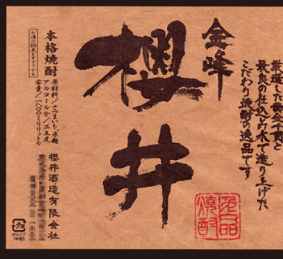 厳選した黄金千貫と
最良の仕込み水で造り上げた
こだわり焼酎の逸品です
金峰
櫻井
逸品
焼酎
本格焼酎
原材料/さつまいも、米麹
アルコール分/二五度
容量/一八〇〇ミリリットル
櫻井酒造有限会社